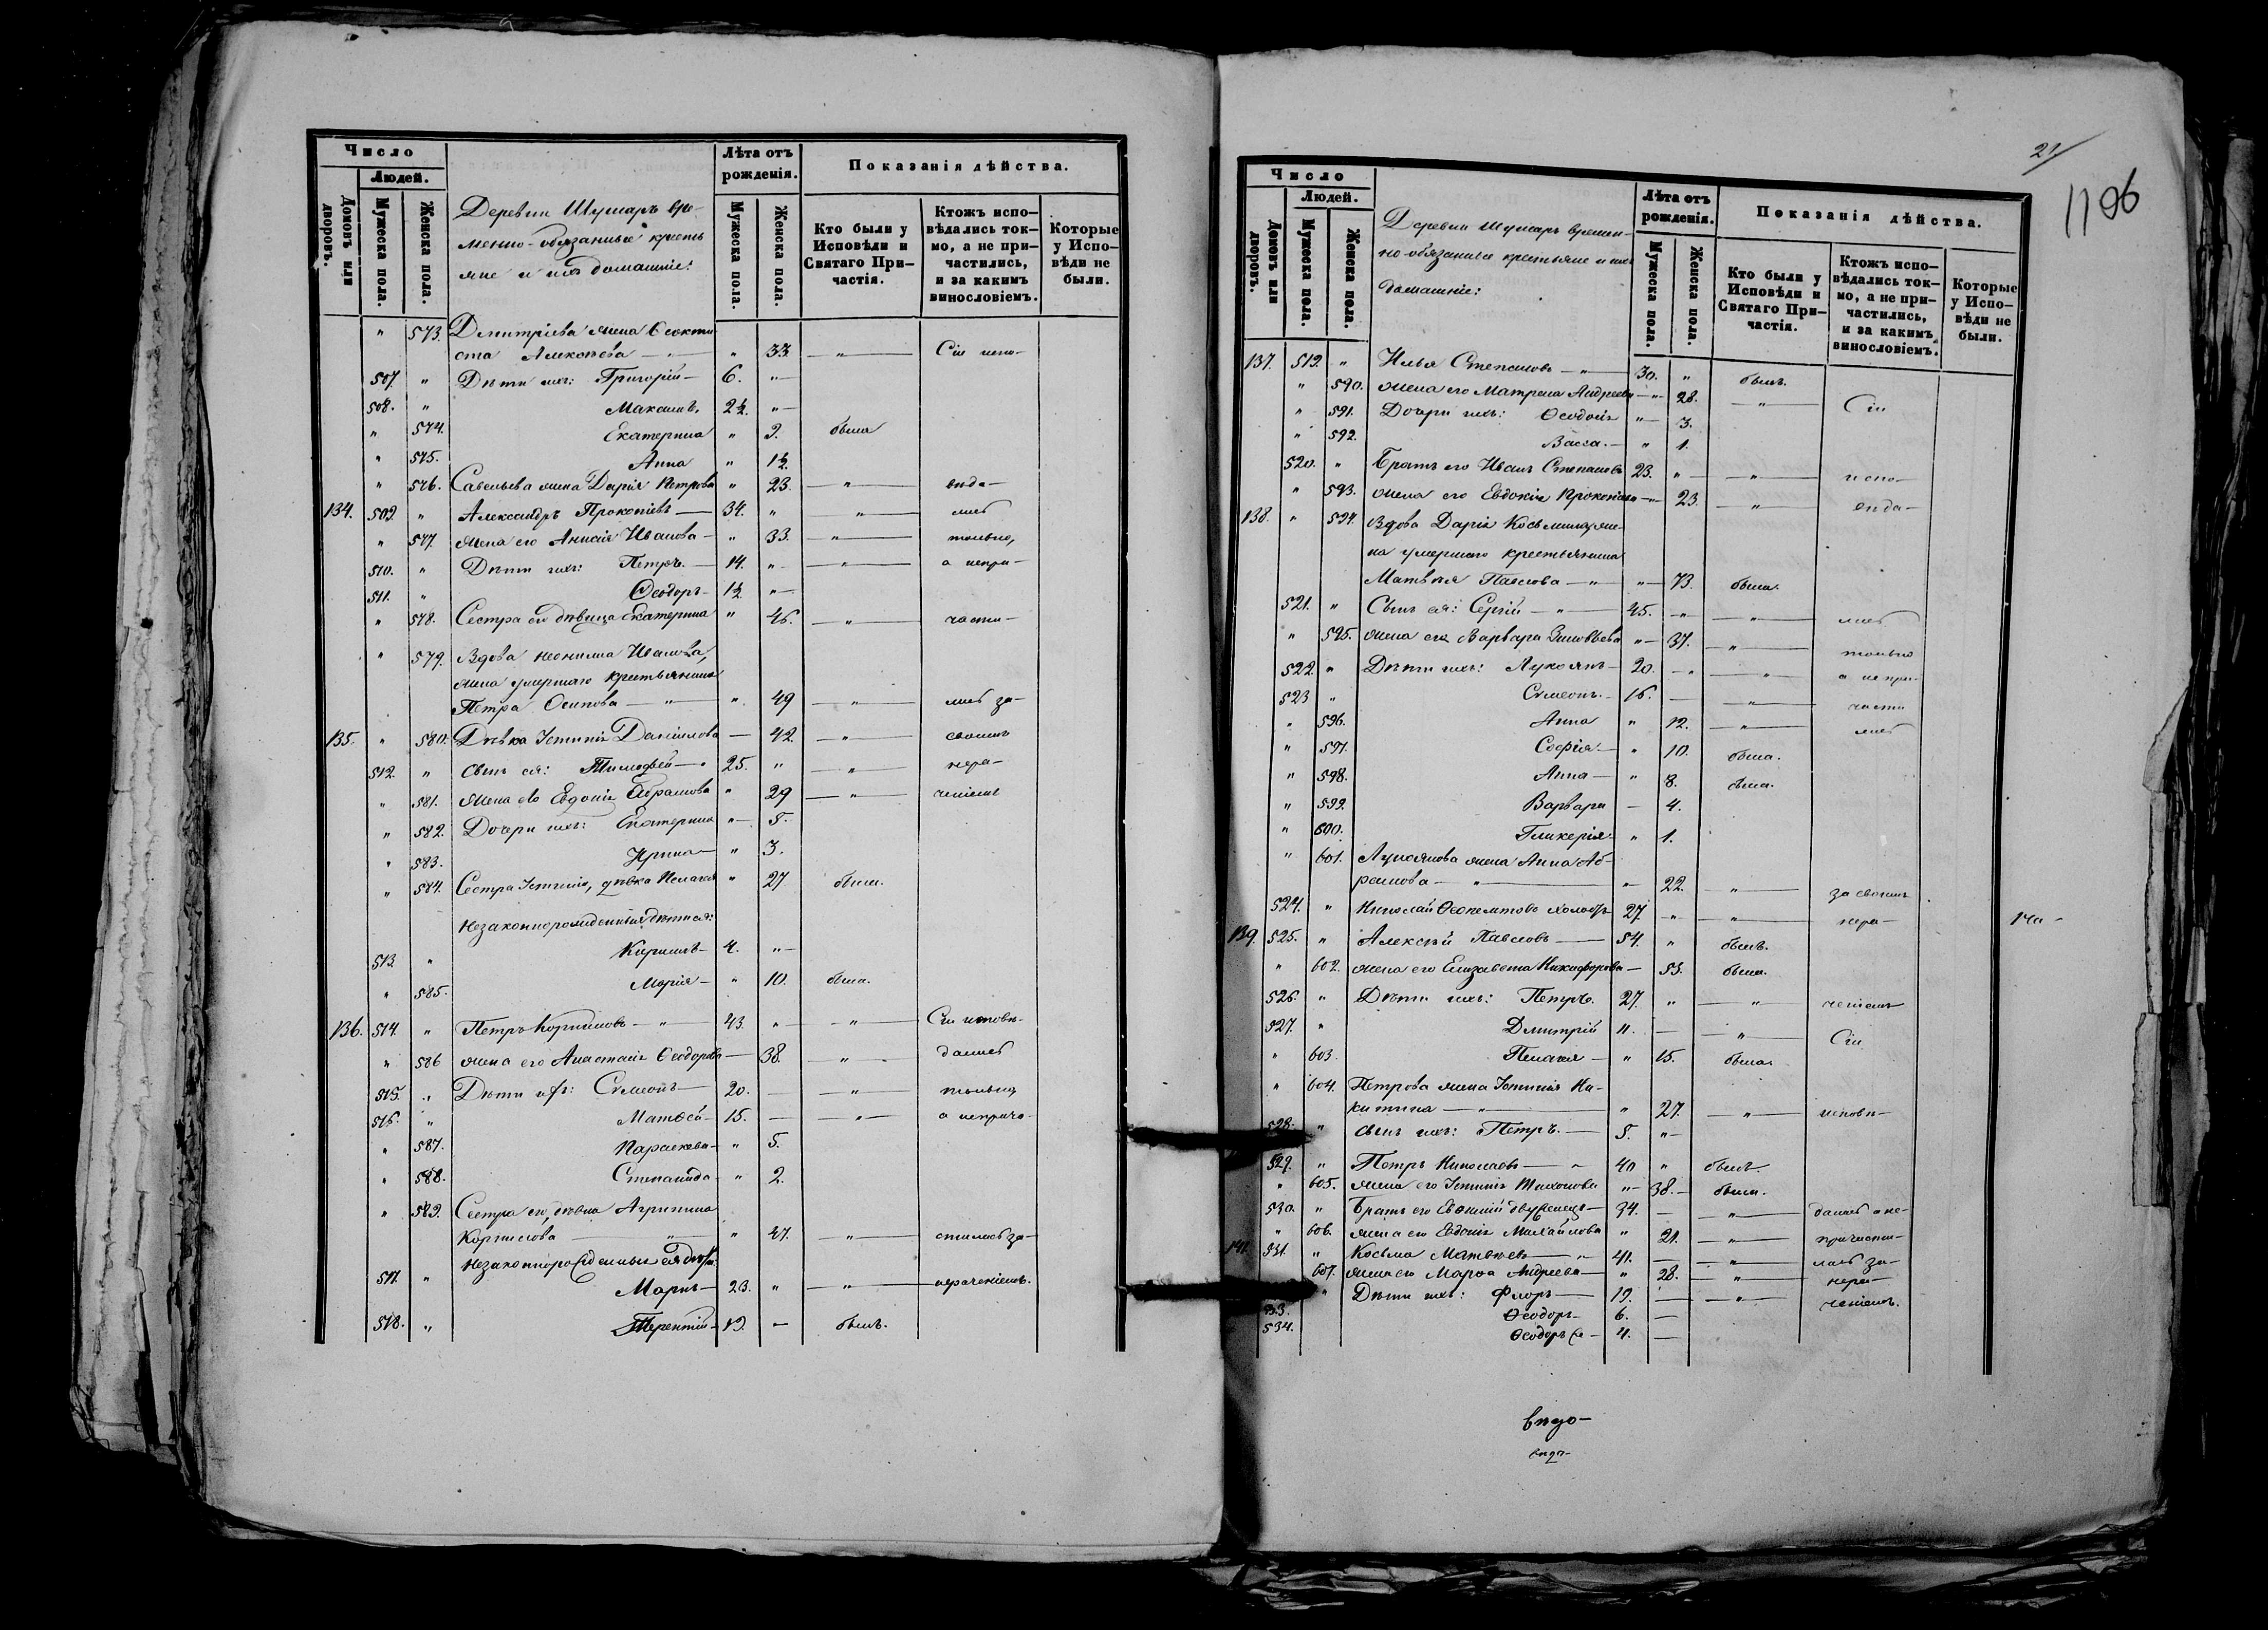 Число
Людей.
Домовъ или дворовъ.
Мужеска пола.
Женска пола.
Деревни Шумаръ вре-
менно-обязанные кресть
яне и ихъ домашніе:
Лѣта отъ рожденія.
Мужеска пола.
Женска пола.
Показанія дѣйства.
Кто были у Исповѣди и Святаго При-частія.
Ктожъ испо-вѣдались ток-мо, а не при-частились, и за какимъ винословіемъ.
Которые у Испо-вѣди не были.
" 573. Дмитріева жена Ѳеокти
ста Алексѣева — " — " 33. — " — Сіи испо-
507. " Дѣти ихъ: Григорій — 6. "—
508. " Максимъ. 2½. "—
" 574. Екатерина " 9. была
" 575. Анна " 1½.
" 576. Савельева жена Дарія Петрова " 23. — " — вѣда-
134. 509. " Александръ Прокопіевъ — 34. " — " — лись
" 577. Жена его Анисія Иванова — " 33. — " — только,
510. " Дѣти ихъ: Петръ. — 14. " — " — а непри-
511. " Ѳеодоръ — 1½. "—
" 578. Сестра его дѣвица Екатерина " 46. — " — части-
" 579. Вдова Неонила Иванова,
жена умершаго крестьянина
Петра Осипова — " — " 49 — " — лись за-
135. " 580. Дѣвка Устинія Даніилова — 42. — " — своимъ
512. " Сынъ ея: Тимофей — 25. " — " — нера-
" 581. Жена его Евдокія Абрамова " 29 — " — ченіемъ
" 582. Дочери ихъ: Екатерина "— 5.
" 583. Ирина — " 3.
" 584. Сестра Устиніи, дѣвка Пелагея " 27 была.
Незаконнорожденныя дѣти ея:
513. " Кириллъ — 4. "—
" 585. Марія — " 10. была.
136. 514. " Петръ Корниловъ — " — 43. "— — " — Сіи исповѣ-
" 586 жена его Анастасія Ѳеодорова — 38. — " — дались
515. " Дѣти ихъ: Сѵмеонъ — 20. — — " — только
516. " Матѳей — 15. — — " — а неприча-
" 587. Параскева — " 5.
" 588. Степанида — " 2.
" 589. Сестра его, дѣвка Агрипина
Корнилова — " — " 47. — " — стились за-
Незаконнорожденныя ея дѣти:
517. " Маркъ — 23. " — " — нераченіемъ.
518. " Терентій — 19. — былъ.
21/
1106
Число
Людей.
Домовъ или дворовъ.
Мужеска пола.
Женска пола.
Деревни Шумаръ времен-
но-обязанные крестьяне и ихъ
домашніе:
Лѣта отъ рожденія.
Мужеска пола.
Женска пола.
Показанія дѣйства.
Кто были у Исповѣди и Святаго При-частія.
Ктожъ испо-вѣдались ток-мо, а не при-частились, и за какимъ винословіемъ.
Которые у Испо-вѣди не были.
137. 519. " Илья Степановъ — " — 30. " былъ.
" 590. Жена его Матрена Андреева —"— 28. — " — Сіи
" 591. Дочери ихъ: Ѳеодосія "— 3.
" 592. Васса. — " 1.
520. " Братъ его Иванъ Степановъ 23. "— — " — испо-
" 593. Жена его Евдокія Прокопіева —"— 23. — " — вѣда-
138. " 594. Вдова Дарія Косьмина, же-
на умершаго крестьянина
Матвѣя Павлова — " — "— 73. была.
521. " Сынъ ея: Сергій — " — 45. —"— — " — лись
" 595. Жена его Варвара Зиновьева "— 37. — " — только
522. " Дѣти ихъ: Лукоянъ — 20. —"— — " — а непри-
523 " Сѵмеонъ. — 16. — — " — части
" 596. Анна " 12. — " — лись
" 597. Софія. — " 10. была.
" 598. Анна — " 8. была.
" 599. Варвара — 4.
" 600. Гликерія. " 1.
" 601. Лукоянова жена Анна Аб-
рамова — " — "— 22. — " — за своимъ
524. " Николай Ѳеопемптовъ холостъ 27. —"— — " — нера- ча-
139. 525. " Алексѣй Павловъ — 54. " былъ.
" 602. Жена его Елизавета Никифорова — 53. была.
526. " Дѣти ихъ: Петръ. 27. " — " — ченіемъ
527. " Дмитрій 11. — — " — Сіи
" 603. Пелагея — " 15. была.
" 604. Петрова жена Устинія Ни-
китина — " — " 27. — " — исповѣ-
528. " Сынъ ихъ: Петръ. — 5. "—
529. " Петръ Николаевъ — " 40 " былъ.
" 605. Жена его Устинія Тихонова "— 38. — была.
530. " Братъ его Евѳимій двуженецъ — 34. — — " — дались а не-
" 606. Жена его Евдокія Михайлова " 21. — " — причасти-
531. " Косьма Матвѣевъ — " 41. — — " — лись за-
607. Жена его Марѳа Андреева — " 28. — " — нера-
" Дѣти ихъ: Флоръ — 19. — — " — ченіемъ.
533. Ѳеодоръ — 6. —
534. Ѳеодоръ — 4. —
вѣдо-
вѣдо-